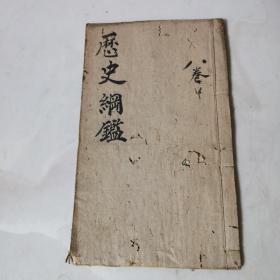 歷史綱鑑
八卷中